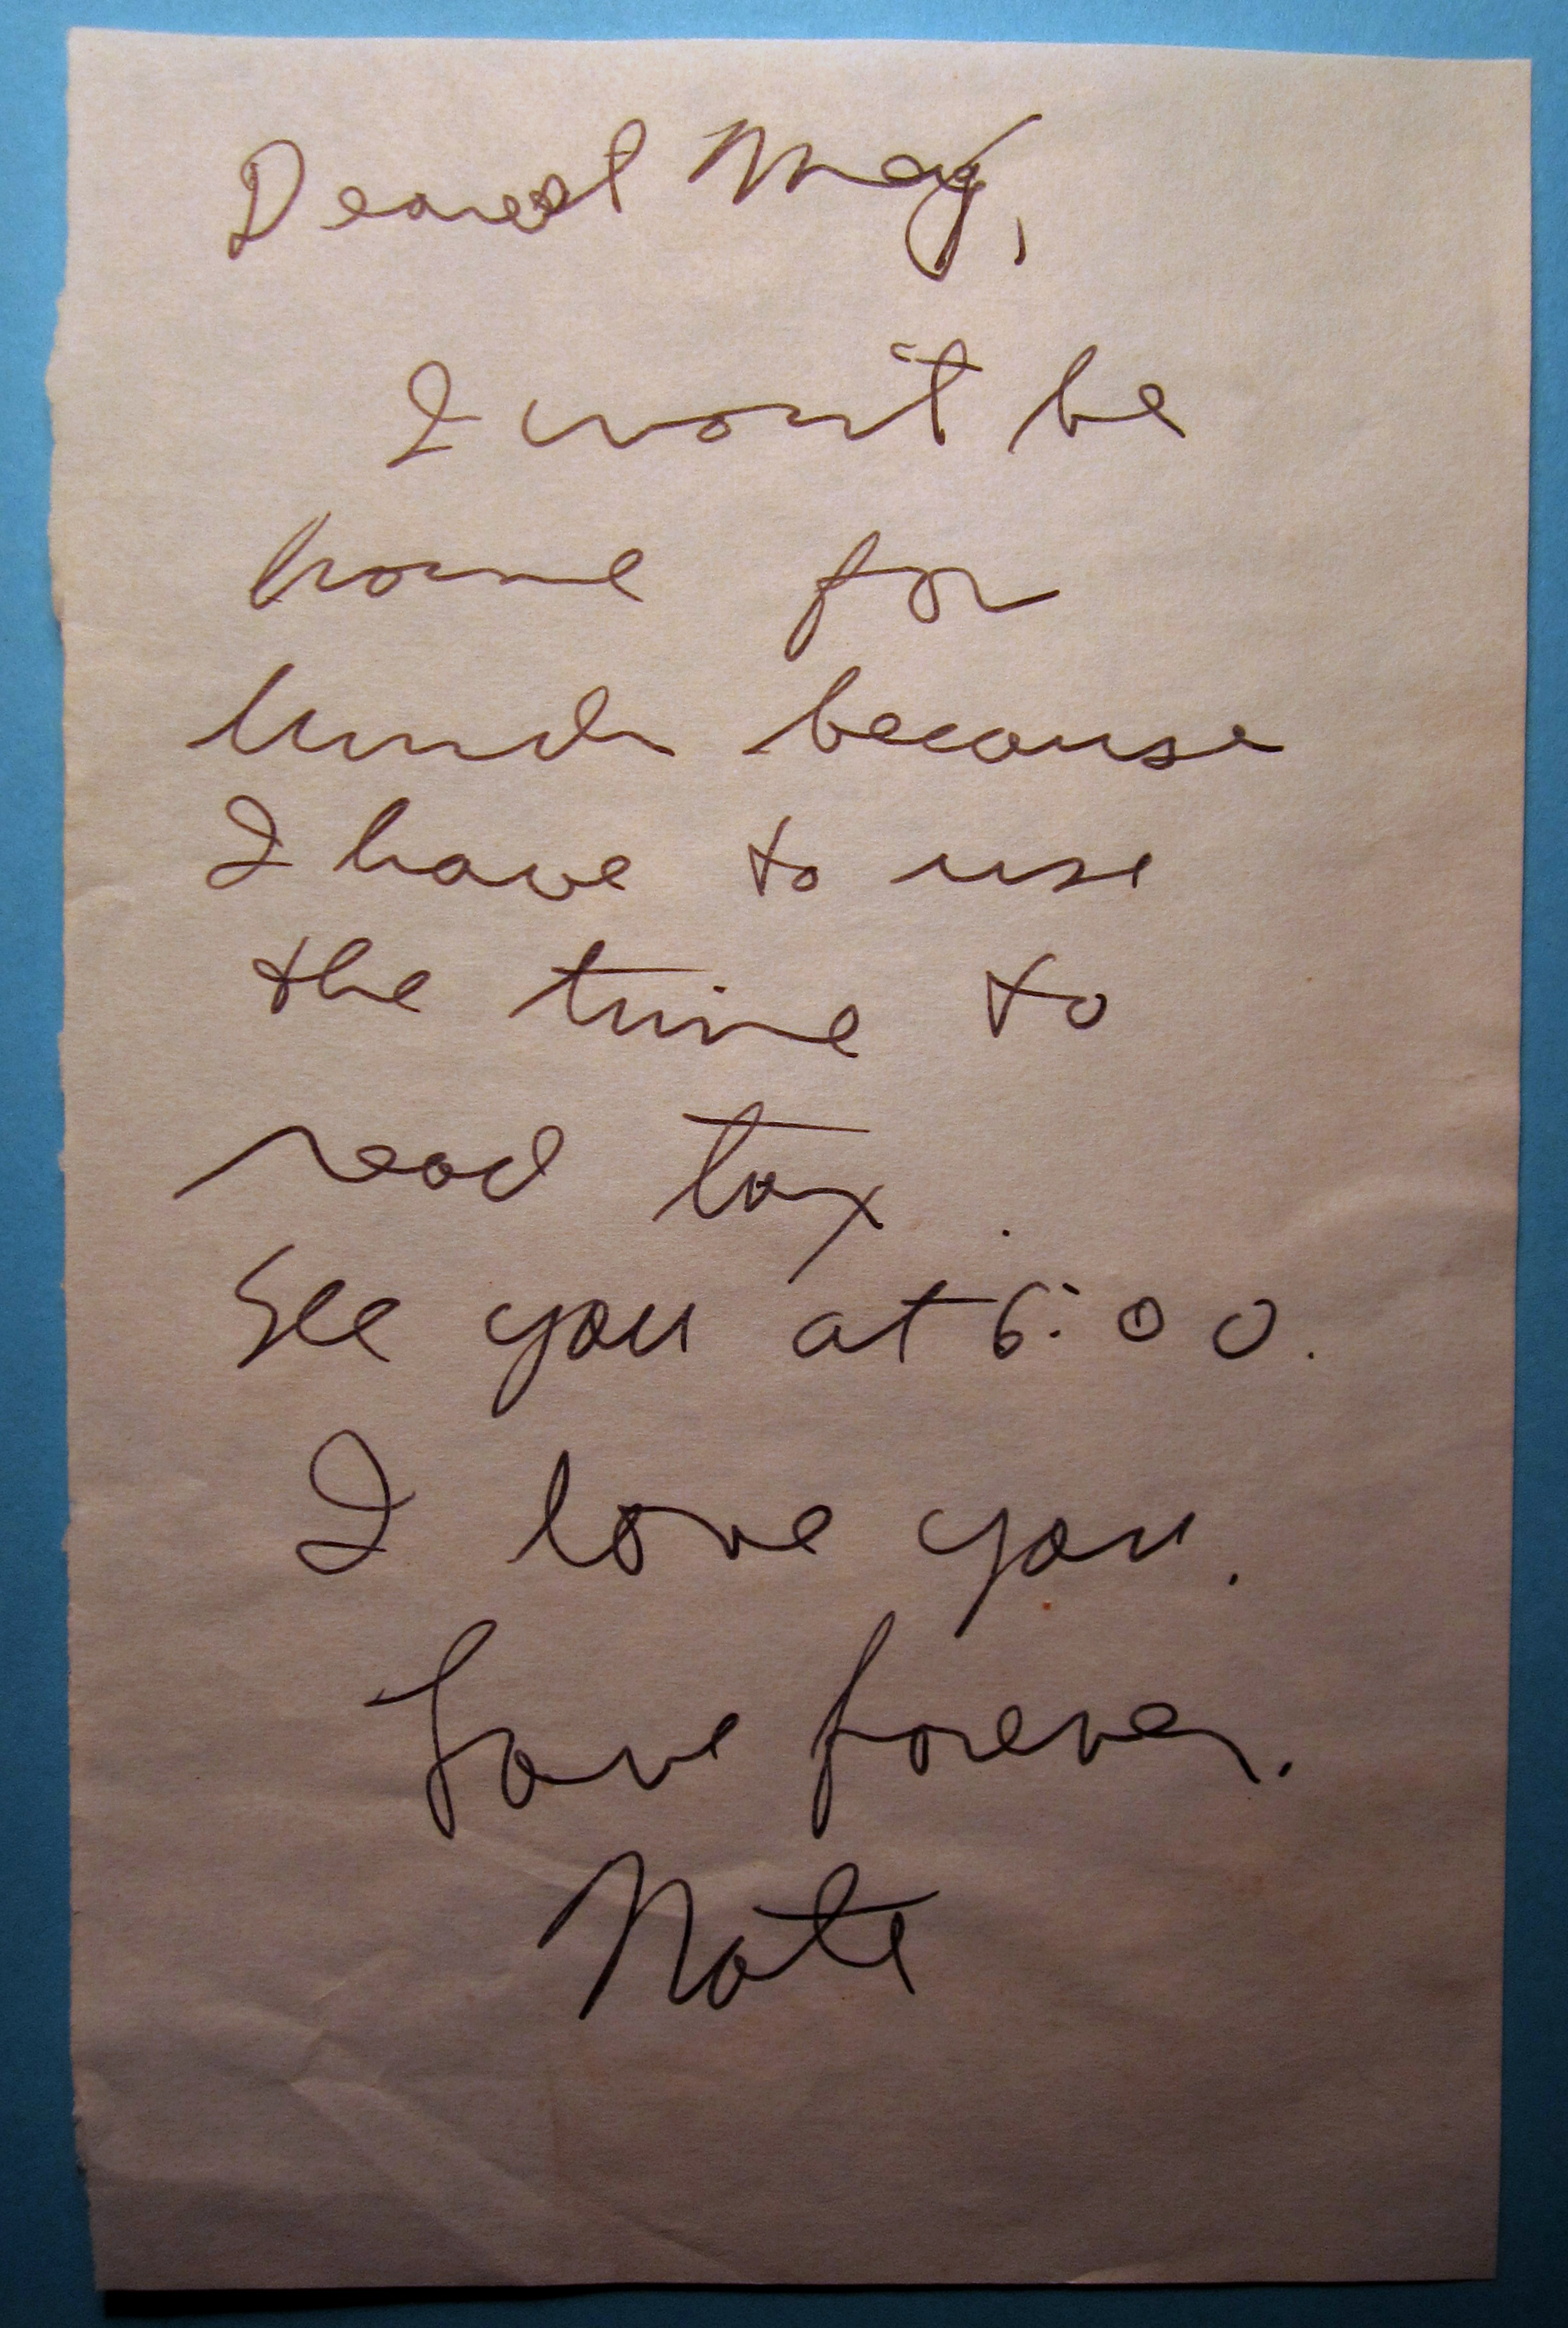 Dearest May,
I won't be
home for
lunch because
I have to use
the time to
read tax.
See you at 6:00.
I love you.
Love forever.
Nate